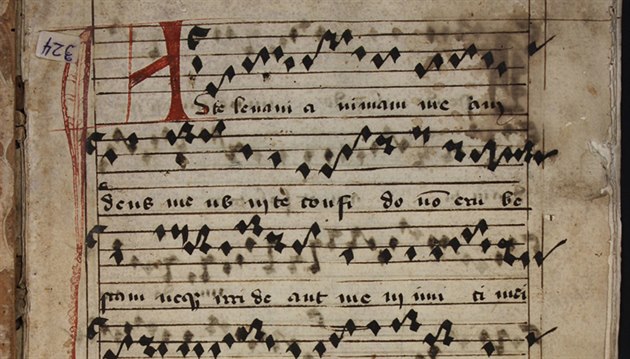 324
Ad te leuaui a nimam me am
deus me us in te confi do nō eru be
scam neqꝫ irri de ant me in imi ci mei